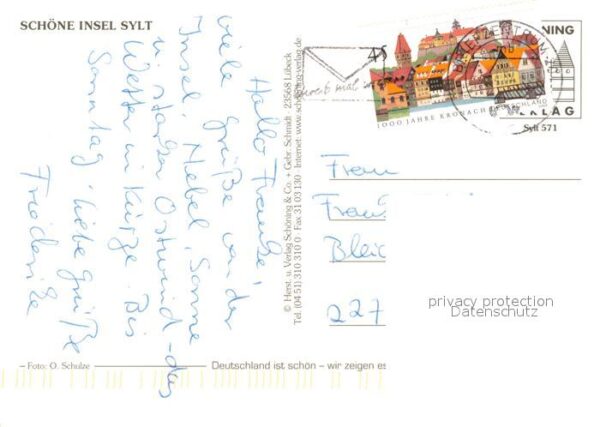 SCHÖNE INSEL SYLT
Hallo Franzi,
viele Grüße von der
Insel. Nebel, Sonne
u. starker Ostwind - das
Wetter in Kürze. Bis
Sonntag, liebe Grüße
Friederike
© Herst. u. Verlag Schöning & Co. + Gebr. Schmidt · 23568 Lübeck
Tel. (04 51) 310 310 0 · Fax 31 03 130 · Internet: www.schoening-verlag.de
45
1000 JAHRE KRONACH
DEUTSCHLAND
BRIEFZENTRUM
NING
LAG
Sylt 571
Frau
Bleic
227
privacy protection
Datenschutz
Foto: O. Schulze
Deutschland ist schön – wir zeigen es